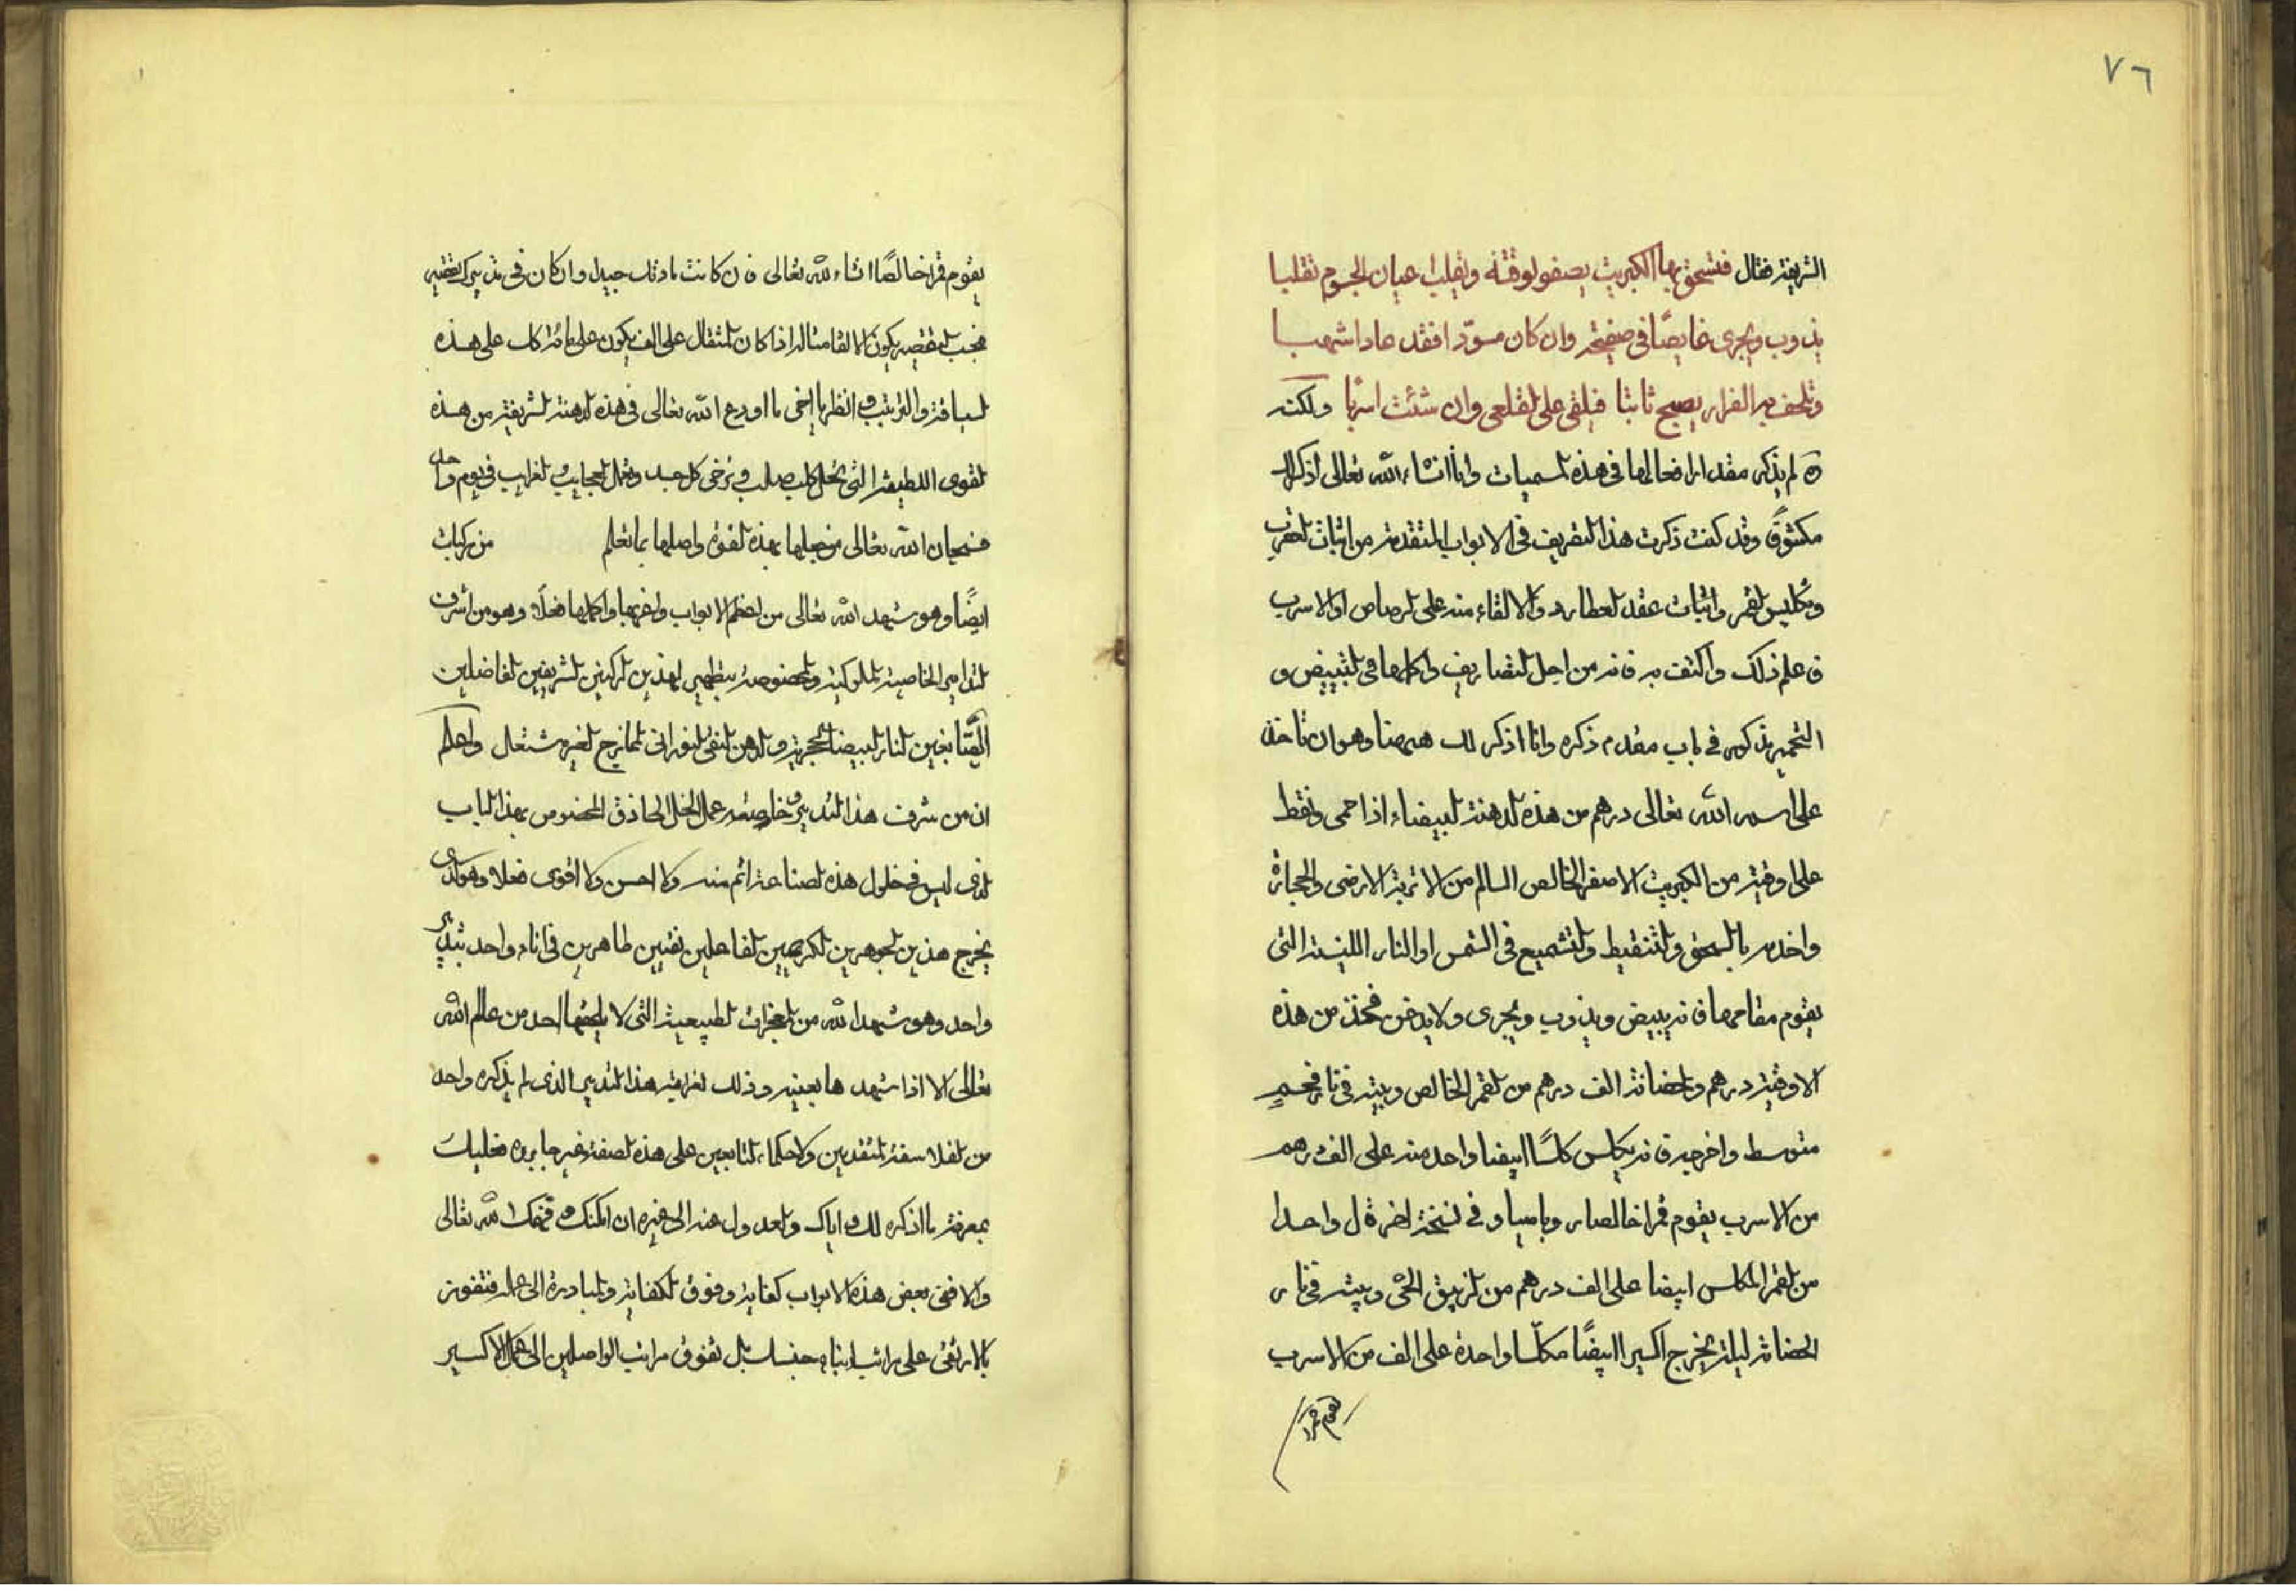 ٧٦
الشريفة فقال فتسحق بها الكبريت يصفو لوقته وتقلب اعيان الجسوم تقلبا
يذوب ويجرى غايصًا في صفيحة وان كان مسودّا فقد عاد اشهبا
وتلحف به الفرار يصبح ثابتا فيلقى على القلعى وان شئت اسربًا ولكنه
لم يذكر مقدار افعالها في هذه المسميات وانا انشاء الله تعالى اذكر لك
مكشوفًا وقد كنت ذكرت هذا التصريف في الابواب المتقدمة من اثبات العقرب
وتكليس القمر واثبات عقد العطارد والالقاء منه على الرصاص او الاسرب
فاعلم ذلك واكتف به فانه من اجل التصاريف واكملها في التبييض و
التحمير مذكور في باب مقدم ذكره وانا اذكر لك ههنا وهو ان تاخذ
على اسم الله تعالى درهم من هذه الدهنة البيضاء اذا حمى ونقط
على اوقية من الكبريت الاصفر الخالص السالم من الاتربة الارضى والحجارة
واخدمه بالسحق والتنقيط والتشميع في الشمس او النار اللينة التى
يقوم مقامها فانه يبيض ويذوب ويجرى ولا يدخن فخذ من هذه
الاوقية درهم والحضانة الف درهم من القمر الخالص وبيته في نار فحم
متوسط واخرجه فانه يكلس كلسًا ابيضا واحد منه على الف درهم
من الاسرب يقوم قمرا خالصا وفي نسخة اخرة ل واحدا
من القمر المكلس ابيضا على الف درهم من الزيبق الحى وبيته في نار
الحضانة ليلة يخرج اكسيرا ابيضًا مكلّسا واحدة على الف من الاسرب
يقوم قمرا
يقوم قمرا خالصًا انشاء الله تعالى فان كانت مادتك جيدة وان كان في تدبيرك نقصه
فبحسب النقصه يكون الالقا مثاله اذا كان المثقال على الف يكون على مائة كان على هذه
السياقة والترتيب وانظر يا اخى ما اودع الله تعالى في هذه الدهنة الشريفة من هذه
القوى اللطيفة التى تحل كل صلب وترخى كل جسد وتعمل العجايب والغرايب في يوم واحد
فسبحان الله تعالى من جبلها بهذه القوة واصلها بما تعلم من تركيبك
ايضًا وهو شهد الله تعالى من اعظم الابواب واغربها واكملها فعلاً وهو من اشرف
التدابير الخاصية الملوكية والمخصوصة بتطهير لهذين الركنين الشريفين الفاضلين
الصّابغين النار البيضا الحجرية والدهن النقى النورانى الممازج الغير مشتعل واعلم
ان من شرف هذا التدبير وخاصيته عمل الخل الحاذق المخصوص بهذا الباب
الذى ليس في خلول هذه الصناعة اتم منه ولا احسن ولا اقوى فعلا وهو الذى
يخرج هذين الجوهرين الكريمين الفاعلين نقيين طاهرين في اناء واحد بتدبير
واحد وهو شهد الله من المعجزات الطبيعية التى لا احد من عالم الله
تعالى الا اذا شهدها بعينه وذلك لغرابة هذا التدبير الذى لم يذكره واحد
من الفلاسفة المتقدمين والحكماء التابعين على هذه الصفة غير جابر وه فعليك
بمعرفة ما اذكره لك واياك والعدول عنه الى غيره ان امكنك فهمك الله تعالى
والا ففى بعض هذه الابواب كفاية وفوق الكفاية والمبادرة الى عمله فتفوز
بالارتقى على مراتب ابناء جنسك بل تفوق مراتب الواصلين الى عمل الاكسير